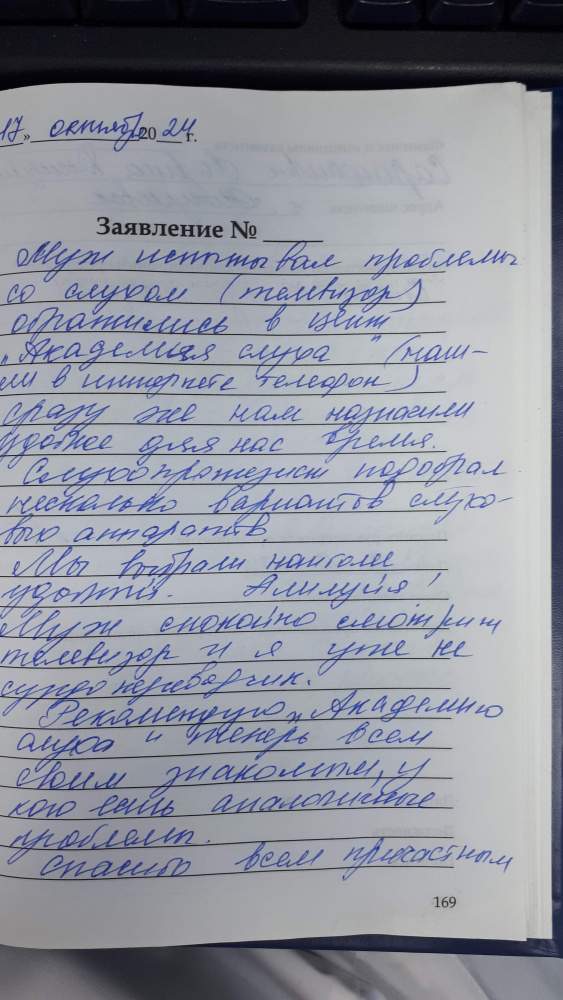 17» октября 2024 г.
Заявление №
Муж испытывал проблемы
со слухом (телевизор)
обратились в центр
„Академия слуха" (наш-
ли в интернете телефон)
сразу же нам назначили
удобное для нас время.
Слухопротезист подобрал
несколько вариантов слухо-
вых аппаратов.
Мы выбрали наиболее
Алилуйя!
Муж спокойно смотрит
телевизор и я уже не
сурдопереводчик.
Рекомендую „Академию
слуха" и теперь всем
своим знакомым, у
кого есть аналогичные
проблемы.
Спасибо всем причастным
169